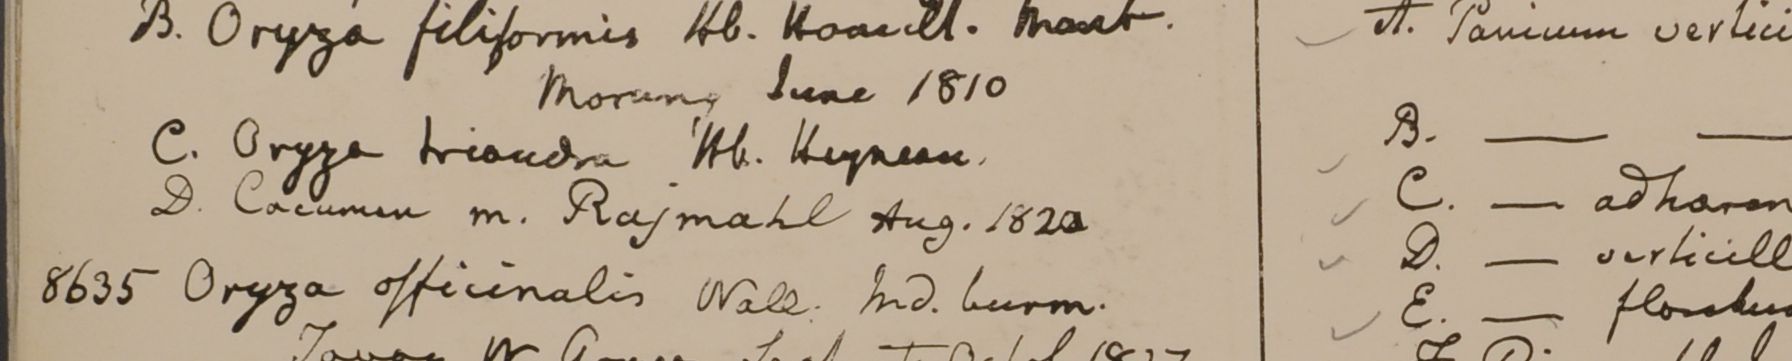 B. Oryza filiformis Hb. Hamilt. Mart.
Morung June 1810
C. Oryza triandra Hb. Heynean.
D. Cacumen m. Rajmahl Aug. 1820
8635 Oryza officinalis Wall. Ind. burm.
Tavoy W. Gomez 1827
A. Panicum vertici
B. — —
C. — adhæren
D. — verticill
E. —